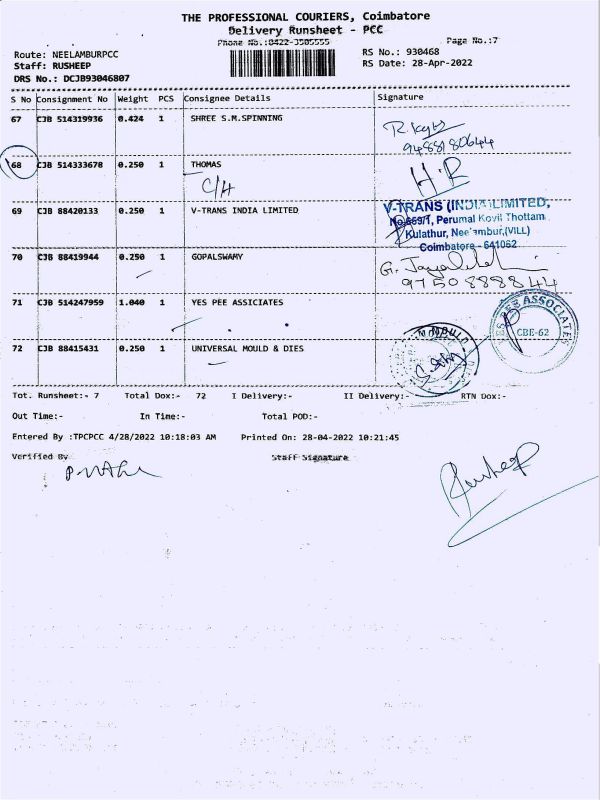 THE PROFESSIONAL COURIERS, Coimbatore
Delivery Runsheet - PCC
Phone No.:0422-3505555
Page No.:7
Route: NEELAMBURPCC
RS No.: 930468
Staff: RUSHEEP
RS Date: 28-Apr-2022
DRS No.: DCJB93046807
S No Consignment No Weight PCS Consignee Details Signature
67 CJB 514319936 0.424 1 SHREE S.M.SPINNING
9488180644
68 CJB 514333678 0.250 1 THOMAS
C/H H.R
69 CJB 88420133 0.250 1 V-TRANS INDIA LIMITED
V-TRANS (INDIA) LIMITED,
No.669/1, Perumal Kovil Thottam
Kulathur, Neelambur,(VILL)
Coimbatore - 641062
70 CJB 88419944 0.250 1 GOPALSWAMY
G.
9750888844
71 CJB 514247959 1.040 1 YES PEE ASSICIATES
YES PEE ASSOCIATES
CBE-62
72 CJB 88415431 0.250 1 UNIVERSAL MOULD & DIES
MOULD
Tot. Runsheet:- 7 Total Dox:- 72 I Delivery:- II Delivery:- RTN Dox:-
Out Time:- In Time:- Total POD:-
Entered By :TPCPCC 4/28/2022 10:18:03 AM Printed On: 28-04-2022 10:21:45
Verified By Staff Signature
Rusheep